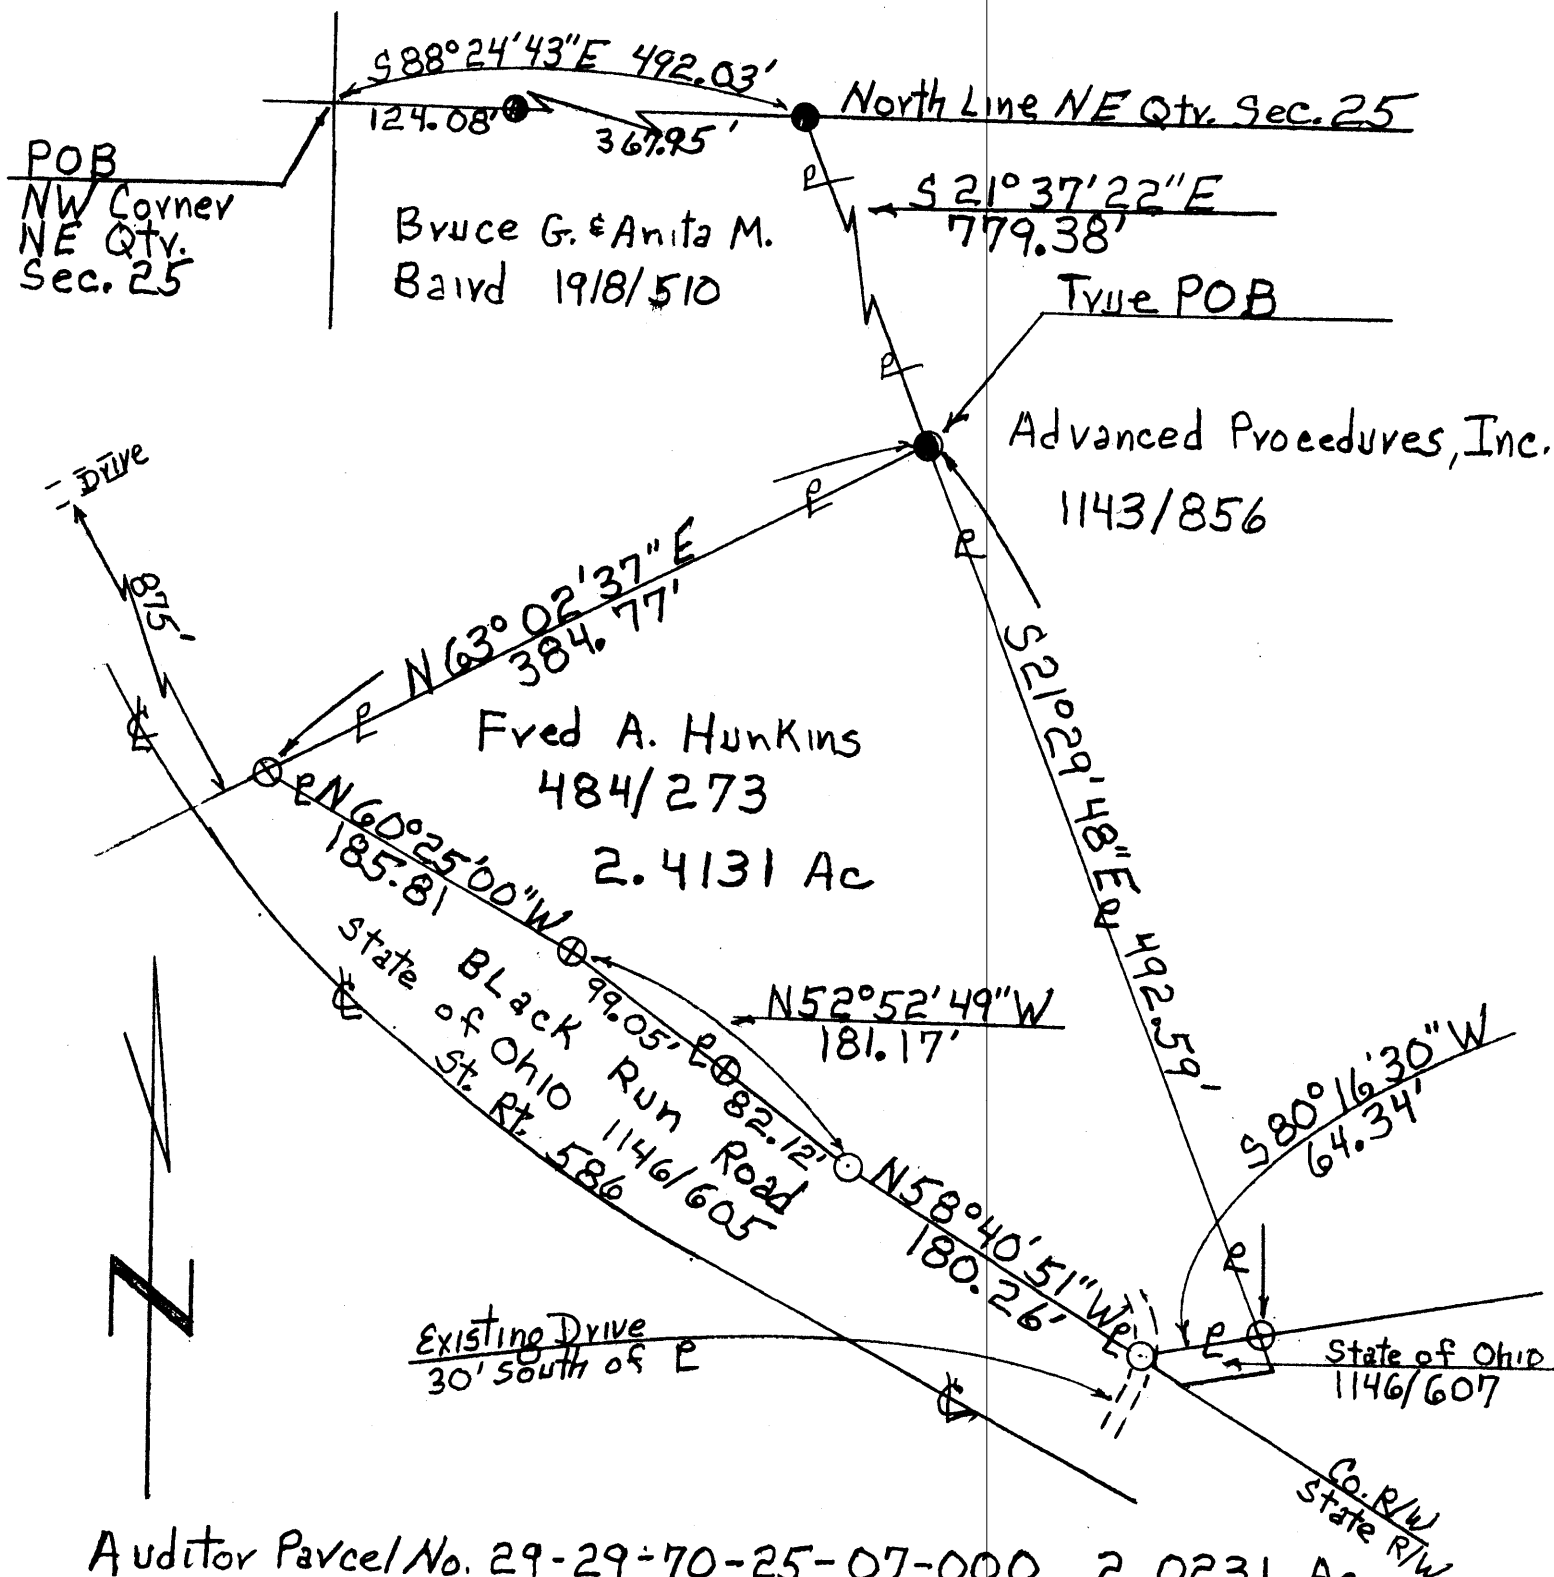 S88°24'43"E 492.03'
124.08'
367.95'
North Line NE Qtr. Sec. 25
POB
NW Corner
NE Qtr.
Sec. 25
Bruce G. & Anita M.
Baird 1918/510
S 21° 37' 22" E
779.38'
True POB
Advanced Procedures, Inc.
1143/856
Drive
875'
N 63° 02' 37" E
384.77'
S21°29'48"E 492.59'
Fred A. Hunkins
484/273
2.4131 Ac
N60°25'00"W
185.81
N52°52'49"W
181.17'
99.05'
82.12'
Black Run Road
State of Ohio 1146/605
St. Rt. 586
N58°40'51"W
180.26'
S80°16'30"W
64.34'
Existing Drive
30' South of P
State of Ohio
1146/607
Co. R/W
State R/W
N
Auditor Parcel No. 29-29-70-25-07-000 2.0231 Ac